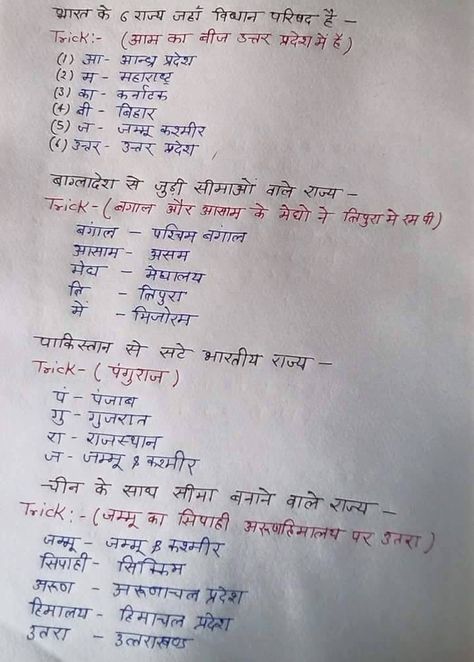 भारत के 6 राज्य जहाँ विधान परिषद है -
Trick:- (आम का बीज उत्तर प्रदेश में है)
(1) आ - आन्ध्र प्रदेश
(2) म - महाराष्ट्र
(3) का - कर्नाटक
(4) बी - बिहार
(5) ज - जम्मू कश्मीर
(6) उत्तर - उत्तर प्रदेश
बाग्लादेश से जुड़ी सीमाओं वाले राज्य -
Trick - (बगाल और आसाम के मेघो ने त्रिपुरा मे रम पी)
बंगाल - पश्चिम बंगाल
आसाम - असम
मेघ - मेघालय
त्रि - त्रिपुरा
में - मिजोरम
पाकिस्तान से सटे भारतीय राज्य -
Trick - (पंगुराज)
पं - पंजाब
गु - गुजरात
रा - राजस्थान
ज - जम्मू & कश्मीर
चीन के साथ सीमा बनाने वाले राज्य -
Trick:- (जम्मू का सिपाही अरूणहिमालय पर उतरा)
जम्मू - जम्मू & कश्मीर
सिपाही - सिक्किम
अरूण - अरूणाचल प्रदेश
हिमालय - हिमाचल प्रदेश
उतरा - उत्तराखण्ड